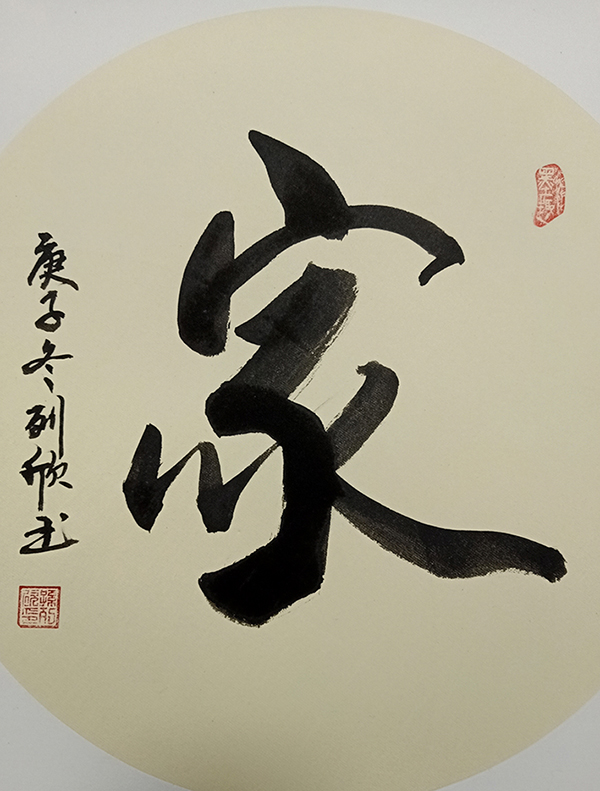 家
庚子冬列欣书